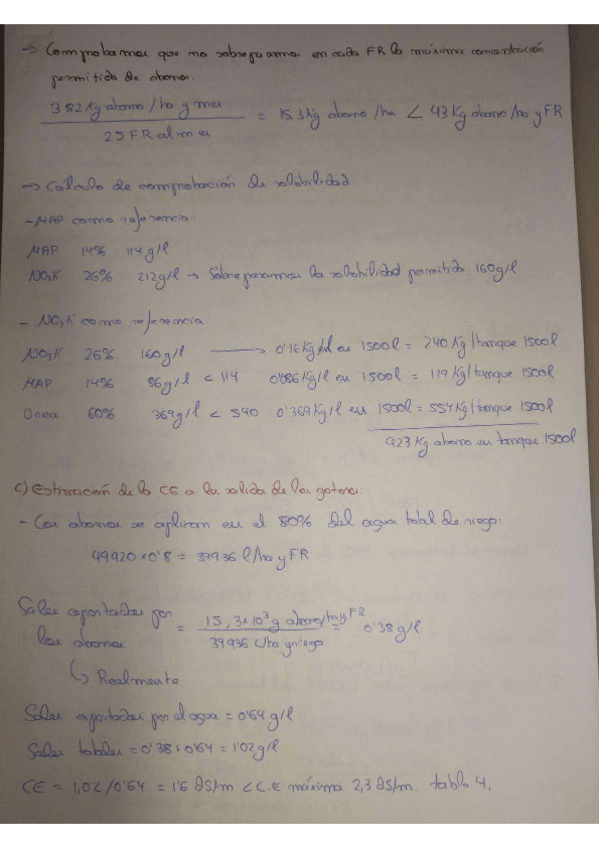 → Comprobamos que no sobrepasamos en cada FR la máxima concentración
permitida de abono.
382 Kg abono/ha y mes / 25 FR al mes = 15.3 Kg abono/ha < 43 Kg abono/ha y FR
→ Cálculo de comprobación de solubilidad:
- MAP como referencia:
MAP 14% 114 g/l
NO3K 26% 212 g/l → Sobrepasamos la solubilidad permitida 160 g/l
- NO3K como referencia
NO3K 26% 160 g/l → 0'16 Kg/l en 1500 l = 240 Kg/tanque 1500 l
MAP 14% 86 g/l < 114 0'086 Kg/l en 1500 l = 129 Kg/tanque 1500 l
Urea 60% 369 g/l < 540 0'369 Kg/l en 1500 l = 554 Kg/tanque 1500 l
923 Kg abono en tanque 1500 l
c) Estimación de la CE a la salida de los goteros:
- Los abonos se aplican en el 80% del agua total de riego:
49920 x 0'8 = 39936 l/ha y FR
Sales aportadas por los abonos = 15,3x10³ g abono/ha y FR / 39936 L/ha y riego = 0'38 g/l
↳ Realmente
Sales aportadas por el agua = 0'64 g/l
Sales totales = 0'38 + 0'64 = 1'02 g/l
CE = 1,02/0'64 = 1'6 dS/m < C.E máxima 2,3 dS/m. tabla 4.